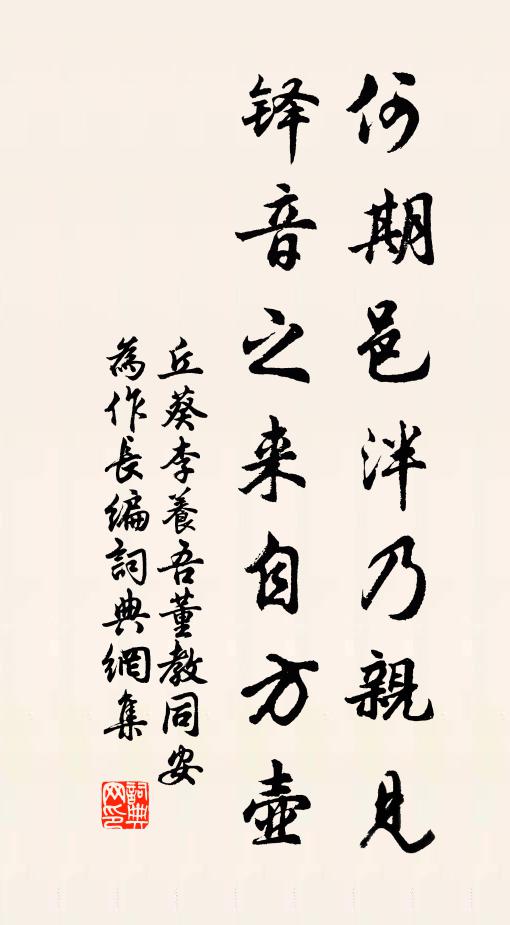 何期邑泮乃親見
铎音之来自方壺
丘葵李養吾董教同安
為作長編詞典網集
詞典网印